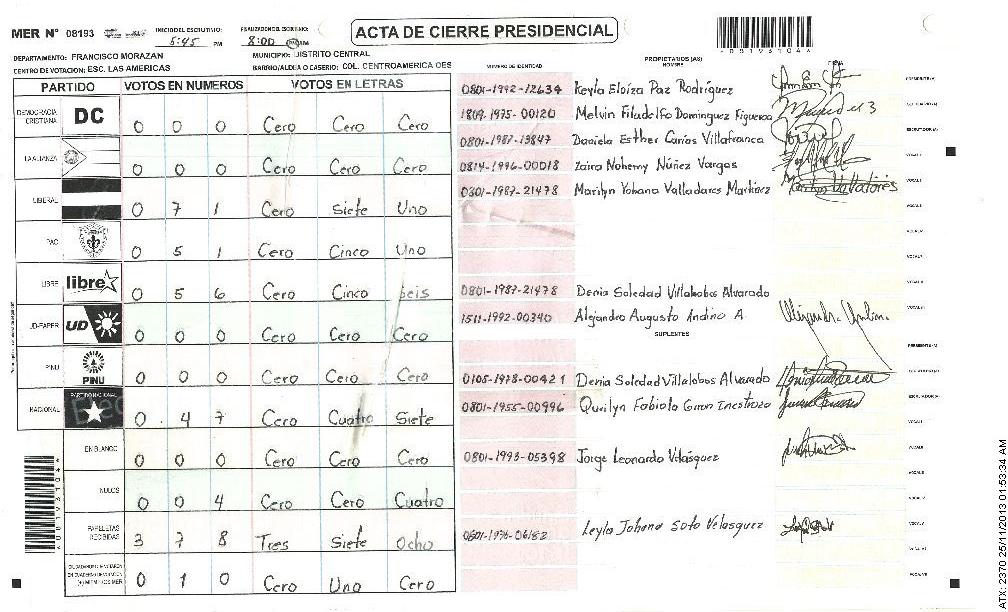 MER N° 08193
INICIO DEL ESCRUTINIO: 5:45 PM
FINALIZACION DEL ESCRUTINIO: 8:00 PM
ACTA DE CIERRE PRESIDENCIAL
DEPARTAMENTO: FRANCISCO MORAZAN
MUNICIPIO: DISTRITO CENTRAL
CENTRO DE VOTACION: ESC. LAS AMERICAS
BARRIO/ALDEA O CASERIO: COL. CENTROAMERICA OES
PARTIDO VOTOS EN NUMEROS VOTOS EN LETRAS
DEMOCRACIA CRISTIANA DC 0 0 0 Cero Cero Cero
LA ALIANZA 0 0 0 Cero Cero Cero
LIBERAL 0 7 1 Cero Siete Uno
PAC 0 5 1 Cero Cinco Uno
LIBRE libre 0 5 6 Cero Cinco Seis
UD-FAPER UD 0 0 0 Cero Cero Cero
PINU PINU 0 0 0 Cero Cero Cero
NACIONAL PARTIDO NACIONAL 0 4 7 Cero Cuatro Siete
EN BLANCO 0 0 0 Cero Cero Cero
NULOS 0 0 4 Cero Cero Cuatro
PAPELETAS RECIBIDAS 3 7 8 Tres Siete Ocho
0 1 0 Cero Uno Cero
NUMERO DE IDENTIDAD
PROPIETARIOS (AS)
NOMBRE
FIRMA
0801-1992-12634 Keyla Eloiza Paz Rodríguez
1809-1975-00120 Melvin Filadelfo Dominguez Figueroa
0801-1987-13847 Daniela Esther Carias Villafranca
0814-1996-00018 Zaira Nohemy Núñez Vargas
0301-1987-21478 Marilyn Yohana Valladares Martinez
0801-1987-21478 Denia Soledad Villalobos Alvarado
1511-1992-00340 Alejandro Augusto Andino A
SUPLENTES
0105-1978-00421 Denia Soledad Villalobos Alvarado
0801-1955-00996
0801-1993-05398 Jorge Leonardo Vilásquez
Leyla Johana Soto Velasquez
ATX: 2370 25/11/2013 01:53:34 AM